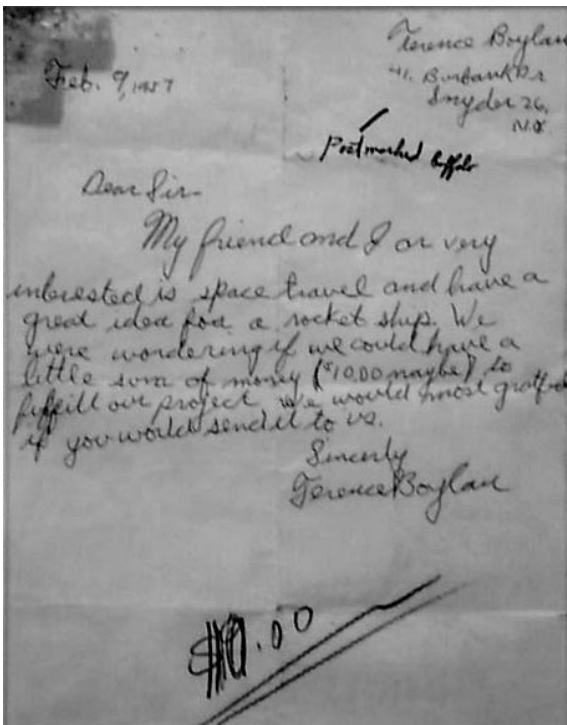 Terence Boylan
Feb. 9, 1957
41. Burbank Dr
Snyder 26,
N.Y.
Postmarked Buffalo
Dear Sir-
My friend and I ar very
interested is space travel and have a
great idea for a rocket ship. We
were wondering if we could have a
little sum of money ($10.00 maybe) to
fulfill our project we would most gratful
if you would send it to us.
Sincerly
Terence Boylan
$10.00